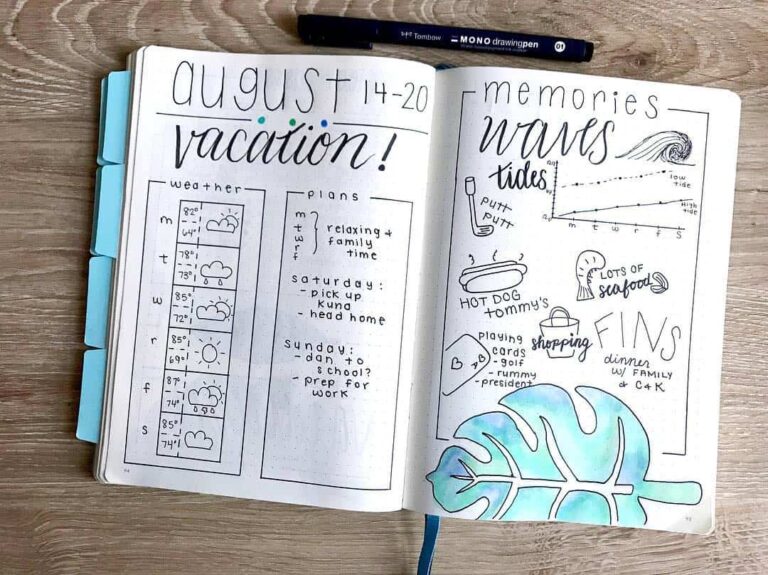 Tombow MONO drawing pen 01
august 14-20
vacation!
weather
m 82° 64°
t 78° 73°
w 85° 72°
r 85° 69°
f 87° 74°
s 85° 74°
plans
m
t
w
r
f
relaxing +
family
time
saturday:
- pick up
kuna
- head home
sunday:
- dan to
school?
- prep for
work
memories
waves
tides
low
tide
High
tide
m t w r f s
putt
putt
HOT DOG
tommy's
LOTS OF
seafood
shopping
FINS
dinner
w/ FAMILY
& C&K
playing
cards
- golf
- rummy
- president